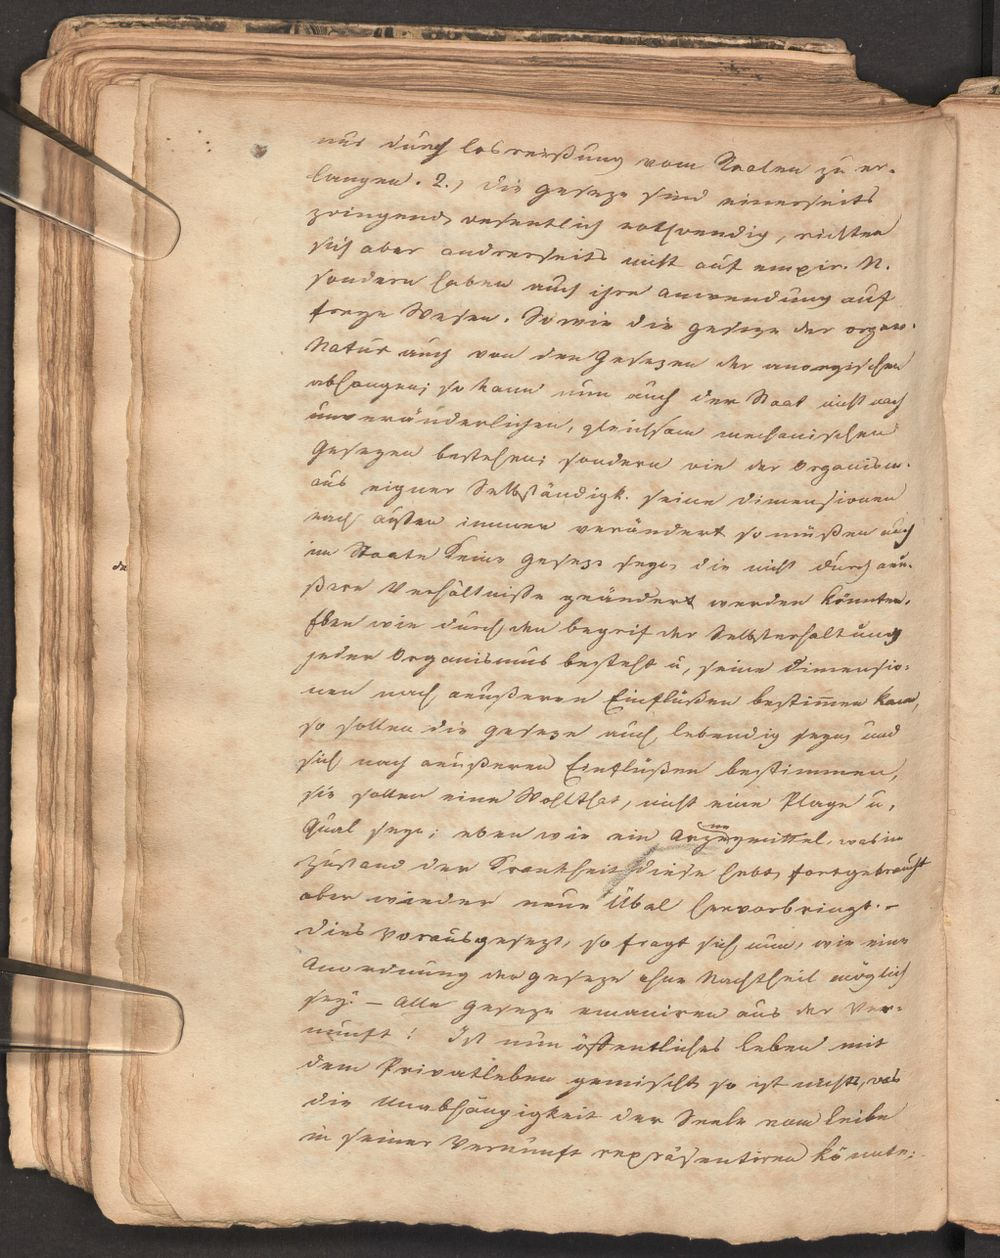 nur durch losreißung vom Realen zu er-
langen. 2., die geseze sind einerseits
zwingend, wesentlich nothwendig, richten
sich aber andrerseits nicht auf empir. N.
sondern haben auch ihre anwendung auf
freye Wesen. So wie die geseze der organ.
Natur auch von den Gesezen der anorgischen
abhangen; so kann nun auch der Staat nicht nach
unveränderlichen, gleichsam mechanischen
Gesezen bestehen; sondern wie der Organism.
aus eigner Selbständigk. seine dimensionen
nach außen immer verändert so müßen auch
im Staate keine geseze seyn, die nicht durch äu-
ßere Verhältniße geändert werden könnten.
Eben wie durch den begrif der Selbsterhaltung
jeder Organismus besteht u, seine dimensio-
nen nach äußeren Einflüßen bestim̅en kann,
so sollen die geseze auch lebendig seyn und
sich nach äußeren Einflüßen bestimmen,
sie sollen eine Wohlthat, nicht eine Plage u,
Qual seyn; eben wie ein Arzneymittel, was im
zustand der Krankheit diese hebt, fortgebraucht
aber wieder neue Übel hervorbringt. –
dies vorausgesezt, so fragt sich nun, wie eine
Anordnung der geseze ohne Nachtheil möglich
sey? – Alle geseze emaniren aus der Ver-
nunft! Ist nun öffentliches leben mit
dem Privatleben gemischt, so ist nichts, was
die Unabhängigkeit der Seele vom leibe
in seiner Vernunft repräsentiren könnte;